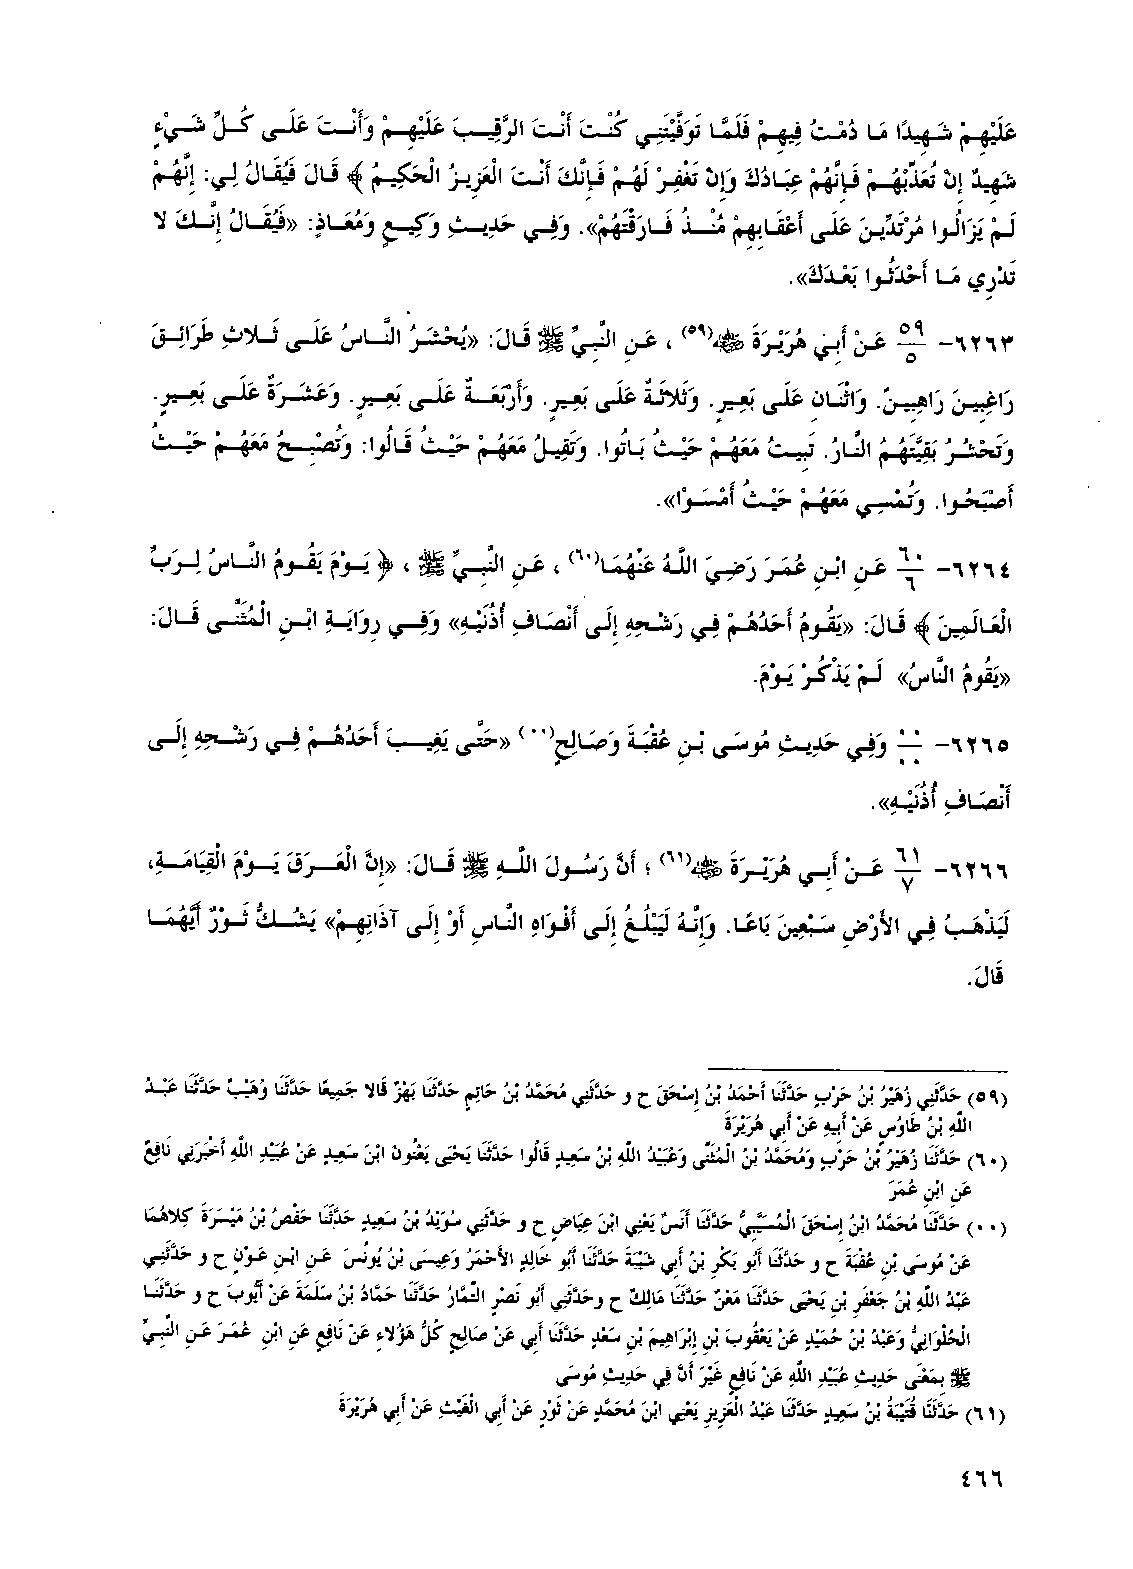 عَلَيْهِمْ شَهِيدًا مَا دُمْتُ فِيهِمْ فَلَمَّا تَوَفَّيْتَنِي كُنْتَ أَنْتَ الرَّقِيبَ عَلَيْهِمْ وَأَنْتَ عَلَى كُلِّ شَيْءٍ
شَهِيدٌ إِنْ تُعَذِّبْهُمْ فَإِنَّهُمْ عِبَادُكَ وَإِنْ تَغْفِرْ لَهُمْ فَإِنَّكَ أَنْتَ الْعَزِيزُ الْحَكِيمُ ﴾ قَالَ فَيُقَالُ لِي: إِنَّهُمْ
لَمْ يَزَالُوا مُرْتَدِّينَ عَلَى أَعْقَابِهِمْ مُنْذُ فَارَقْتَهُمْ». وَفِي حَدِيثِ وَكِيعٍ وَمُعَاذٍ: «فَيُقَالُ إِنَّكَ لا
تَدْرِي مَا أَحْدَثُوا بَعْدَكَ».
٦٢٦٣- ٥٩/٥ عَنْ أَبِي هُرَيْرَةَ ﵁(٥٩)، عَنِ النَّبِيِّ ﷺ قَالَ: «يُحْشَرُ النَّاسُ عَلَى ثَلاثِ طَرَائِقَ
رَاغِبِينَ رَاهِبِينَ. وَاثْنَانِ عَلَى بَعِيرٍ. وَثَلاثَةٌ عَلَى بَعِيرٍ. وَأَرْبَعَةٌ عَلَى بَعِيرٍ. وَعَشَرَةٌ عَلَى بَعِيرٍ.
وَتَحْشُرُ بَقِيَّتَهُمُ النَّارُ. تَبِيتُ مَعَهُمْ حَيْثُ بَاتُوا. وَتَقِيلُ مَعَهُمْ حَيْثُ قَالُوا: وَتُصْبِحُ مَعَهُمْ حَيْثُ
أَصْبَحُوا. وَتُمْسِي مَعَهُمْ حَيْثُ أَمْسَوْا».
٦٢٦٤- ٦٠/٦ عَنِ ابْنِ عُمَرَ رَضِيَ اللَّهُ عَنْهُمَا(٦٠)، عَنِ النَّبِيِّ ﷺ، ﴿ يَوْمَ يَقُومُ النَّاسُ لِرَبِّ
الْعَالَمِينَ ﴾ قَالَ: «يَقُومُ أَحَدُهُمْ فِي رَشْحِهِ إِلَى أَنْصَافِ أُذُنَيْهِ» وَفِي رِوَايَةِ ابْنِ الْمُثَنَّى قَالَ:
«يَقُومُ النَّاسُ» لَمْ يَذْكُرْ يَوْمَ.
٦٢٦٥- ٠٠/٠٠ وَفِي حَدِيثِ مُوسَى بْنِ عُقْبَةَ وَصَالِحٍ(٠٠) «حَتَّى يَغِيبَ أَحَدُهُمْ فِي رَشْحِهِ إِلَى
أَنْصَافِ أُذُنَيْهِ».
٦٢٦٦- ٦١/٧ عَنْ أَبِي هُرَيْرَةَ ﵁(٦١)؛ أَنَّ رَسُولَ اللَّهِ ﷺ قَالَ: «إِنَّ الْعَرَقَ يَوْمَ الْقِيَامَةِ،
لَيَذْهَبُ فِي الأَرْضِ سَبْعِينَ بَاعًا. وَإِنَّهُ لَيَبْلُغُ إِلَى أَفْوَاهِ النَّاسِ أَوْ إِلَى آذَانِهِمْ» يَشُكُّ ثَوْرٌ أَيَّهُمَا
قَالَ.
(٥٩) حَدَّثَنِي زُهَيْرُ بْنُ حَرْبٍ حَدَّثَنَا أَحْمَدُ بْنُ إِسْحَقَ ح و حَدَّثَنِي مُحَمَّدُ بْنُ حَاتِمٍ حَدَّثَنَا بَهْزٌ قَالا جَمِيعًا حَدَّثَنَا وُهَيْبٌ حَدَّثَنَا عَبْدُ
اللَّهِ بْنُ طَاوُسٍ عَنْ أَبِيهِ عَنْ أَبِي هُرَيْرَةَ
(٦٠) حَدَّثَنَا زُهَيْرُ بْنُ حَرْبٍ وَمُحَمَّدُ بْنُ الْمُثَنَّى وَعُبَيْدُ اللَّهِ بْنُ سَعِيدٍ قَالُوا حَدَّثَنَا يَحْيَى يَعْنُونَ ابْنَ سَعِيدٍ عَنْ عُبَيْدِ اللَّهِ أَخْبَرَنِي نَافِعٌ
عَنِ ابْنِ عُمَرَ
(٠٠) حَدَّثَنَا مُحَمَّدُ ابْنُ إِسْحَقَ الْمُسَيَّبِيُّ حَدَّثَنَا أَنَسٌ يَعْنِي ابْنَ عِيَاضٍ ح و حَدَّثَنِي سُوَيْدُ بْنُ سَعِيدٍ حَدَّثَنَا حَفْصُ بْنُ مَيْسَرَةَ كِلاهُمَا
عَنْ مُوسَى بْنِ عُقْبَةَ ح و حَدَّثَنَا أَبُو بَكْرِ بْنُ أَبِي شَيْبَةَ حَدَّثَنَا أَبُو خَالِدٍ الأَحْمَرُ وَعِيسَى بْنُ يُونُسَ عَنِ ابْنِ عَوْنٍ ح و حَدَّثَنِي
عَبْدُ اللَّهِ بْنُ جَعْفَرِ بْنِ يَحْيَى حَدَّثَنَا مَعْنٌ حَدَّثَنَا مَالِكٌ ح وحَدَّثَنِي أَبُو نَصْرٍ التَّمَّارُ حَدَّثَنَا حَمَّادُ بْنُ سَلَمَةَ عَنْ أَيُّوبَ ح و حَدَّثَنَا
الْحُلْوَانِيُّ وَعَبْدُ بْنُ حُمَيْدٍ عَنْ يَعْقُوبَ بْنِ إِبْرَاهِيمَ بْنِ سَعْدٍ حَدَّثَنَا أَبِي عَنْ صَالِحٍ كُلُّ هَؤُلاءِ عَنْ نَافِعٍ عَنِ ابْنِ عُمَرَ عَنِ النَّبِيِّ
ﷺ بِمَعْنَى حَدِيثِ عُبَيْدِ اللَّهِ عَنْ نَافِعٍ غَيْرَ أَنَّ فِي حَدِيثِ مُوسَى
(٦١) حَدَّثَنَا قُتَيْبَةُ بْنُ سَعِيدٍ حَدَّثَنَا عَبْدُ الْعَزِيزِ يَعْنِي ابْنَ مُحَمَّدٍ عَنْ ثَوْرٍ عَنْ أَبِي الْغَيْثِ عَنْ أَبِي هُرَيْرَةَ
٤٦٦